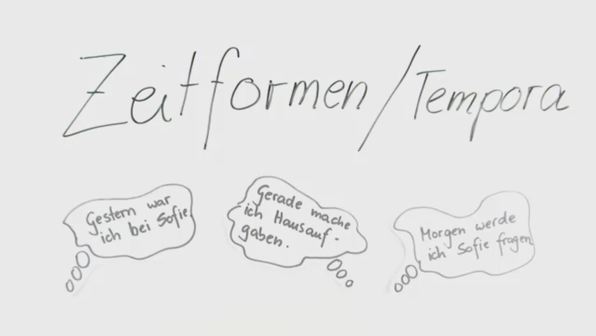 Zeitformen/Tempora
Gestern war
ich bei Sofie.
Gerade mache
ich Hausauf-
gaben.
Morgen werde
ich Sofie fragen.